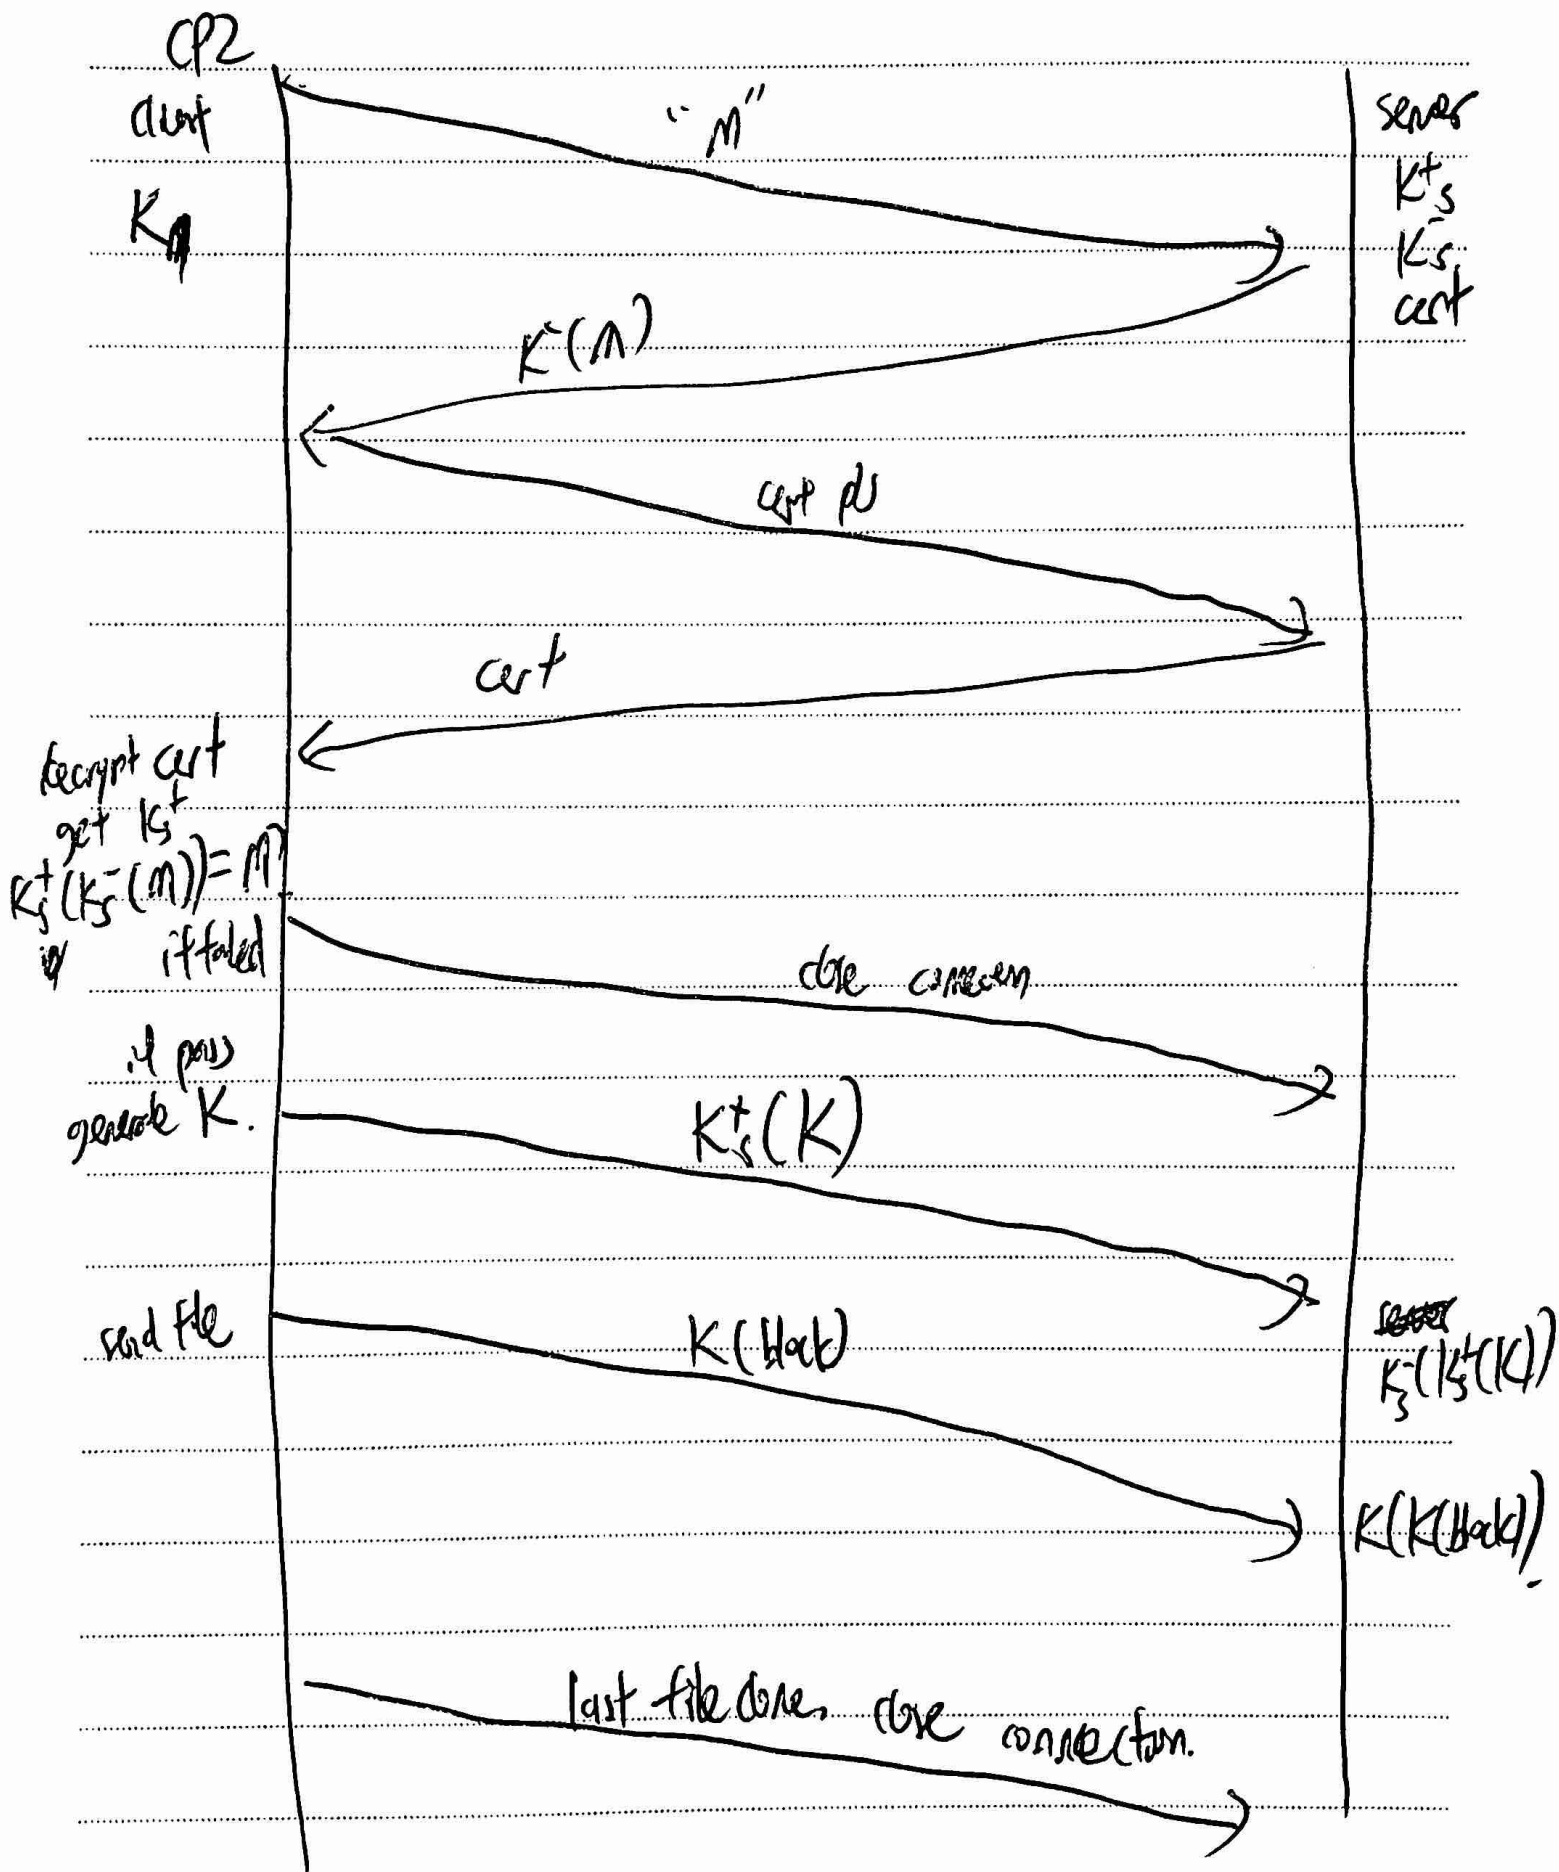 CP2
client
"M"
server
K⁺s
K⁻s
cert
K⁻(M)
cert pls
cert
decrypt cert
get Ks⁺
Ks⁺(Ks⁻(M))=M?
if failed
close connection
if pass
generate K.
Ks⁺(K)
send file
K(block)
Ks⁻(Ks⁺(K))
K(K(block)).
last file done, close connection.